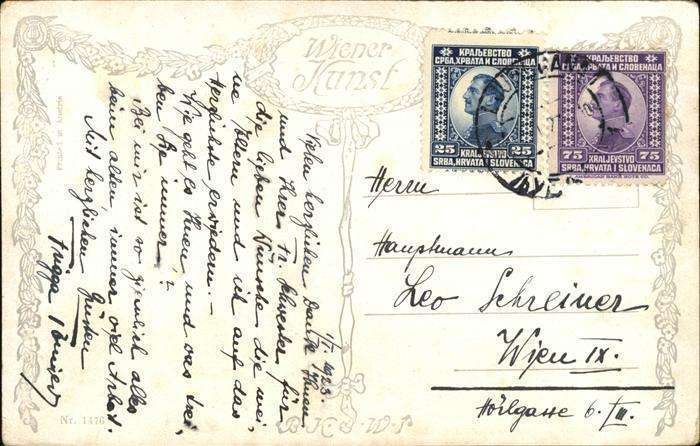 Wiener
Kunst
КРАЉЕВСТВО
СРБА, ХРВАТА И СЛОВЕНАЦА
25 25
KRALJEVSTVO
SRBA, HRVATA I SLOVENACA
КРАЉЕВСТВО
СРБА, ХРВАТА И СЛОВЕНАЦА
75 75
KRALJEVSTVO
SRBA, HRVATA I SLOVENACA
1/I. 1923.
Vielen herzlichen Dank Ihnen
und Ihrer Fr. Schwester für
die lieben Wünsche die mei
ne Eltern und ich auf das
herzlichste erwiedern. –
Wie geht es Ihnen und was trei
ben Sie immer?
Bei mir ist so ziemlich alles
beim alten, immer viel Arbeit.
Mit herzlichen Grüßen
Herrn
Hauptmann
Leo Schreiner
Wien IX.
Hörlgasse 6.
Nr. 1476
B.K.W.I